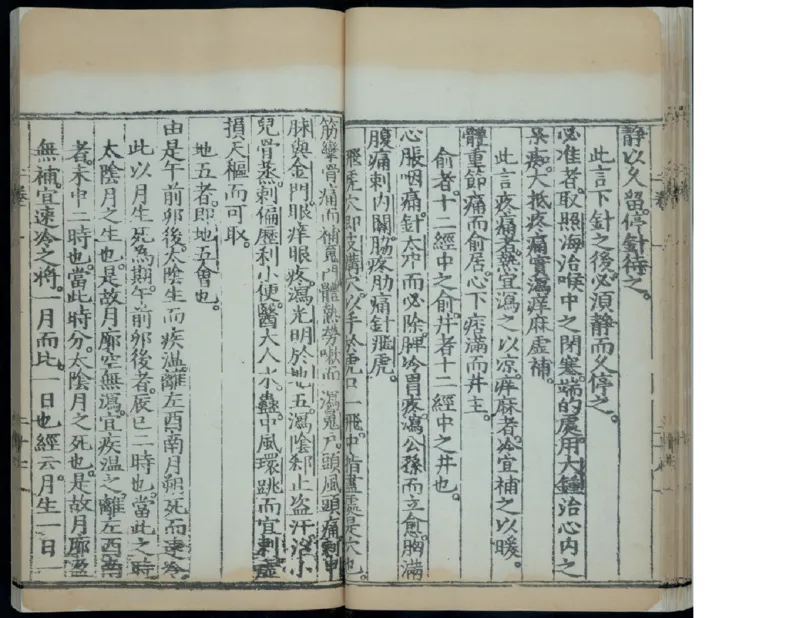 静以久留。停針待之。
此言下針之後。必須静而久停之。
必准者。取照海治喉中之閉塞。端的處用大鍾治心内之
呆痴。大抵疼痛實瀉。痒麻虚補。
此言疼痛者。熱宜瀉之以凉。痒麻者。冷宜補之以暖。
體重節痛而俞居。心下痞滿而井主。
俞者。十二經中之俞。井者十二經中之井也。
心脹咽痛。針太冲而必除。脾冷胃疼。瀉公孫而立愈。胸滿
腹痛刺内關。脇疼肋痛針飛虎。
飛虎穴即支溝穴。以手於虎口一飛。中指盡處是穴也。
筋攣骨痛而補魂門。體熱勞嗽而瀉魄戸。頭風頭痛。刺申
脉與金門。眼痒眼疼。瀉光明於地五。瀉陰郄止盗汗。治小
兒骨蒸。刺偏歷利小便。醫大人水蠱。中風環跳而宜刺。虚
損天樞而可取。
地五者。即地五會也。
由是午前卯後。太陰生而疾温。離左酉南月朔死而速冷。
此以月生死為期。午前卯後者。辰巳二時也。當此之時
太陰月之生也。是故月廓空無瀉。宜疾温之。離左酉南
者。未申二時也。當此時分。太陰月之死也。是故月廓盈
無補。宜速冷之。將一月而比。一日也。經云。月生一日一